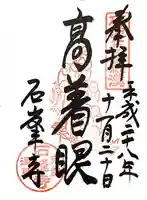 奉拝
平成二十八年
十一月二十日
高着眼
石峯寺